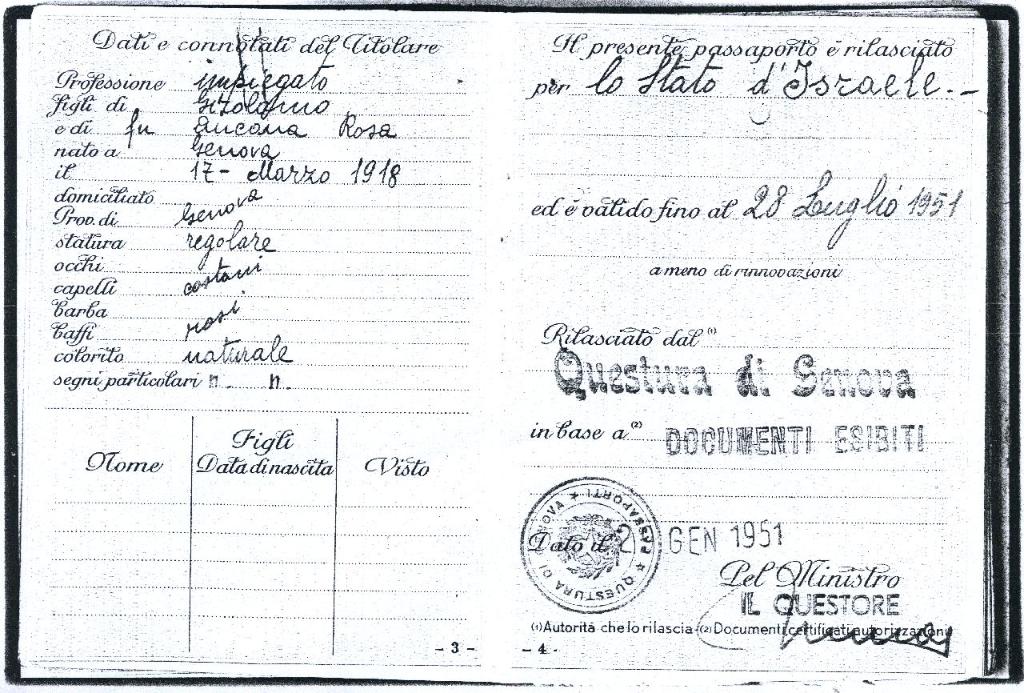 Dati e connotati del Titolare
Professione impiegato
figli di Girolamo
e di fu Ancona Rosa
nato a Genova
il 17 - Marzo 1918
domiciliato
Prov. di Genova
statura regolare
occhi
capelli castani
barba
baffi rasi
colorito naturale
segni particolari n. n.
Figli
Nome Data di nascita Visto
- 3 -
Il presente passaporto è rilasciato
per lo Stato d'Israele. -
ed è valido fino al 28 Luglio 1951
a meno di rinnovazioni
Rilasciato dal (1)
Questura di Genova
in base a (2) DOCUMENTI ESIBITI
QUESTURA DI GENOVA ★ PASSAPORTI ★
Dato il 2 GEN 1951
Pel Ministro
IL QUESTORE
(1) Autorità che lo rilascia - (2) Documenti, certificati, autorizzazioni
- 4 -